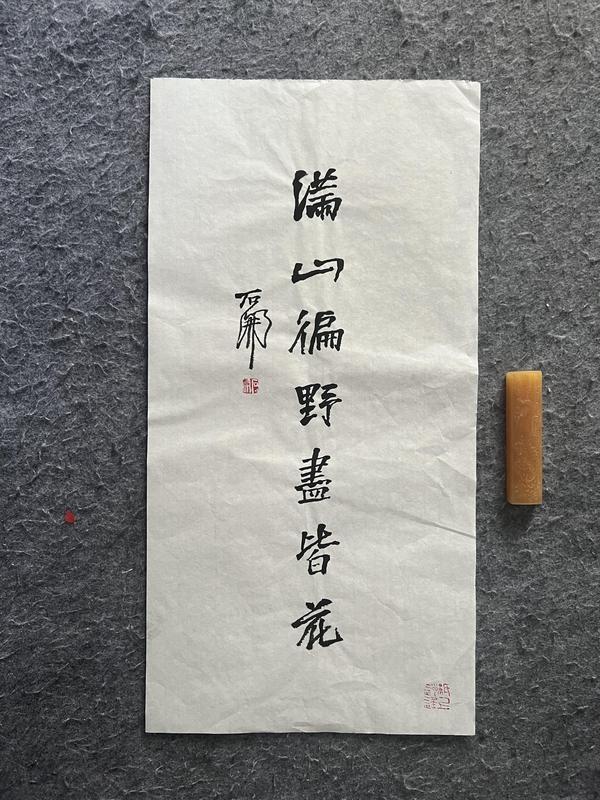 滿山徧野盡皆花
石開